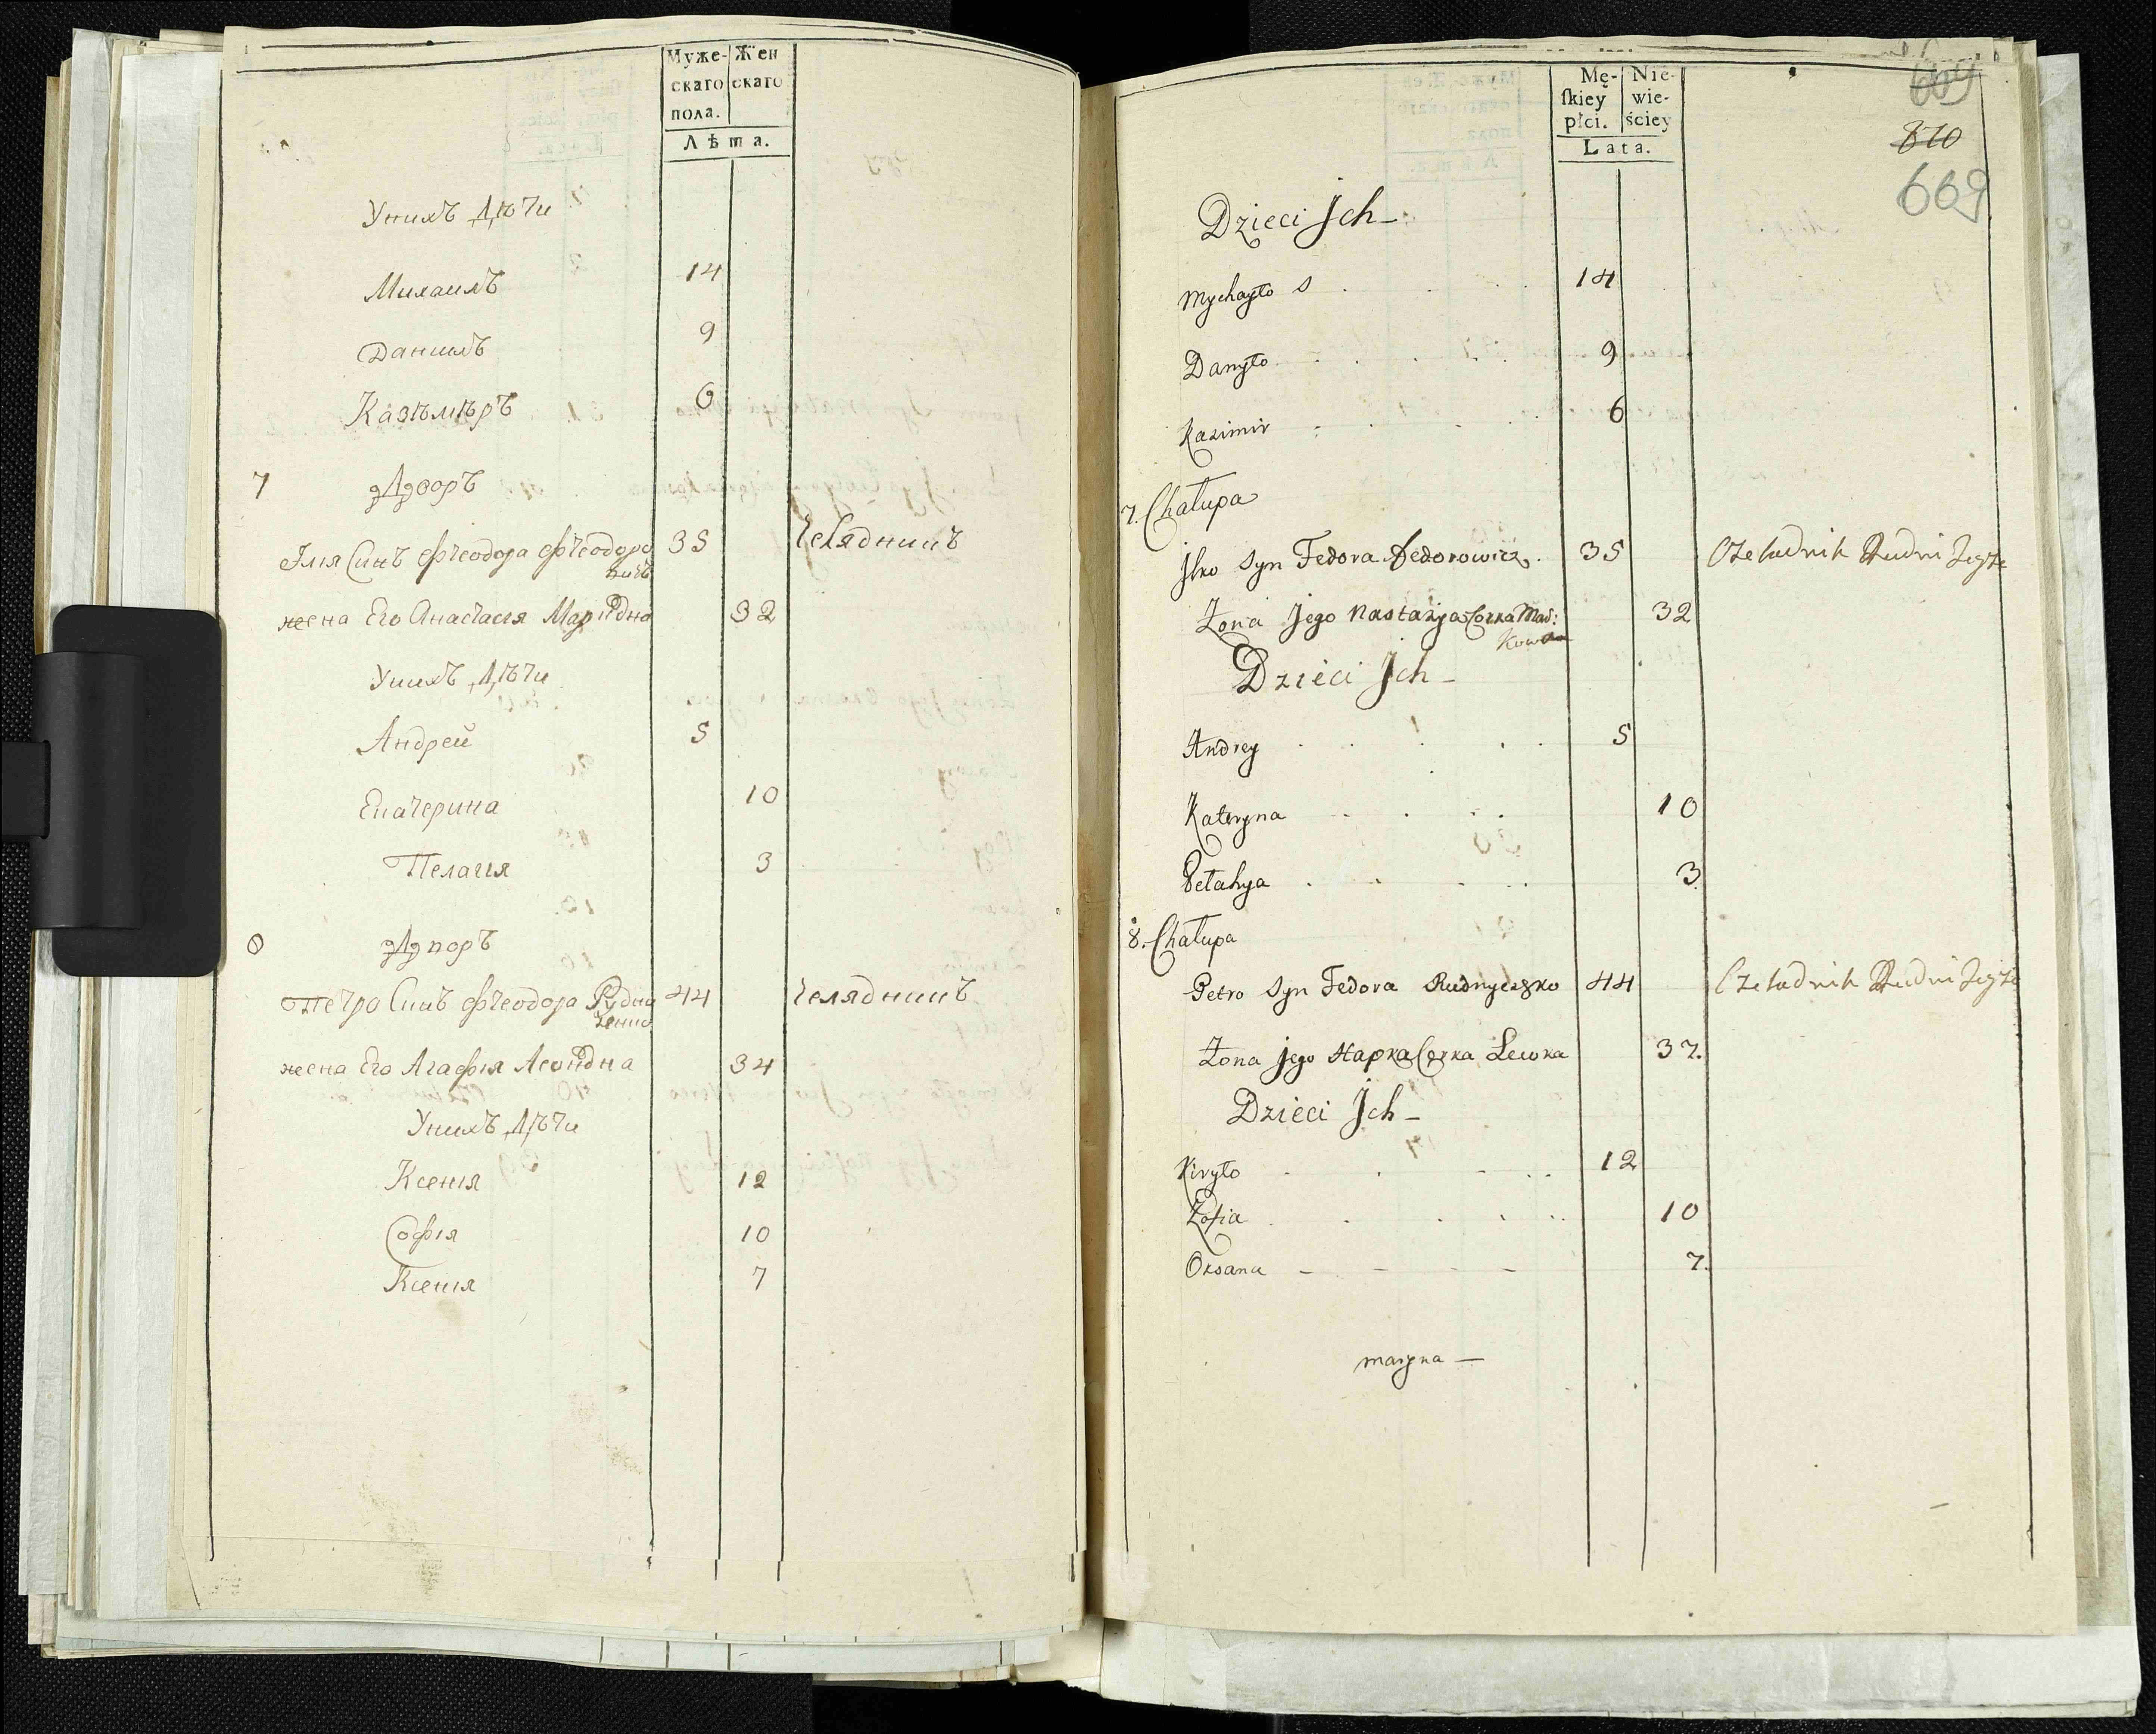 Муже- Жен
скаго скаго
пола.
Лѣта.
Унихъ Дѣти
Михаилъ 14
Данилъ 9
Казѣмѣръ 6
7 Дворъ
Илия Синъ Фѣодора Фѣодоро 35 Челядникъ
вичъ
жена Его Анастасія 32
Унихъ Дѣти
Андрей 5
Екатерина 10
Пелагія 3
8 Дворъ
Петро Синъ Фѣодора Рудни 44 Челядникъ
ченко
жена Его Агафія 34
Унихъ Дѣти
Ксенія 12
Софія 10
Ксенія 7
Mę- Nie-
ſkiey wie-
płci. ściey
Lata.
609
870
669
Dzieci Jch –
Mychayło S 14
Danyło 9
Kazimir 6
7. Chałupa
Jłko Syn Fedora Fedorowicz. 35 Czeladnik Rudni
Zona Jego Nastazya Corka Mar: 32
kowa
Dzieci Jch –
Andrey 5
Kateryna 10
Pełahya 3
8. Chałupa
Petro Syn Fedora Rudnyczko 44 Czeladnik Rudni
Zona Jego Hapka Corka Lewka 37.
Dzieci Jch –
Kiryło 12
Zofia 10
Oxana 7.
maryna –